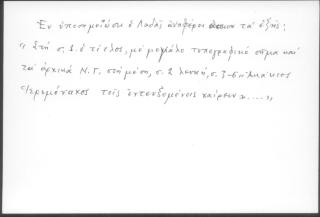 Ἐν ὑποσημειώσει ὁ Λαδᾶς ἀναφέρει τὰ ἑξῆς:
"Στὴ σ. 1. ὁ τίτλος, μὲ μεγάλο τυπογραφικὸ σῆμα καὶ
τὰ ἀρχικὰ Ν. Γ. στὴ μέση, σ. 2 λευκή, σ. 3-6 "Ἀκάκιος
Ἱερομόναχος τοῖς ἐντευξομένοις χαίρειν"....."